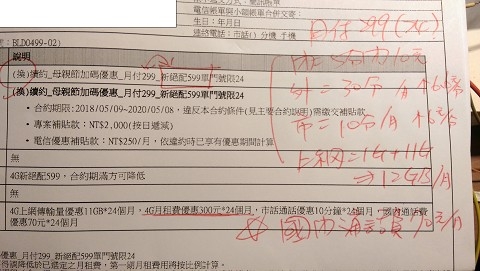 電信帳單與小額帳單合併文寄:
生日:年月日
連絡電話:市話() 分機 手機
月付299(24)
: BLD0499-02)
說明
(換)續約_母親節加碼優惠_月付299_新絕配599單門號限24
(換)續約_母親節加碼優惠_月付299_新絕配599單門號限24
• 合約期限:2018/05/09~2020/05/08,違反本合約條件(見主要合約說明)需繳交補貼款
• 專案補貼款:NT$2,000(按日遞減)
• 電信優惠補貼款:NT$250/月,依違約時已享有優惠期間計算
= 30分/月
市 = 10分/月
上網 = 1G+11G
⇒ 12GB/月
無
4G新絕配599,合約期滿方可降低
無
4G上網傳輸量優惠11GB*24個月,4G月租費優惠300元*24個月,市話通話優惠10分鐘*24個月,
優惠70元*24個月
優惠_月付299_新絕配599單門號限24